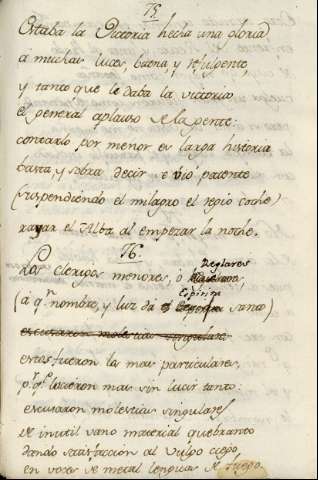 75.
Estaba la Victoria hecha una gloria
á muchas luces, buena, y refulgente,
y tanto que le daba la victoria
el general aplauso de la gente:
contarlo por menor es larga historia
basta, y sobra decir se vio patente
(suspendiendo el milagro el regio coche)
rayar el Alba al empezar la noche.
76.
Los clerigos menores, ó Reglares
(á qn nombre, y luz dá el Espiritu santo)
escusaron molestias singulares
estos fueron los mas particulares,
pr qe lucieron mas sin lucir tanto:
escusaron molestias singulares
de inutil vano material quebranto
dando satisfaccion al vulgo ciego
en voces de metal lenguas de fuego.